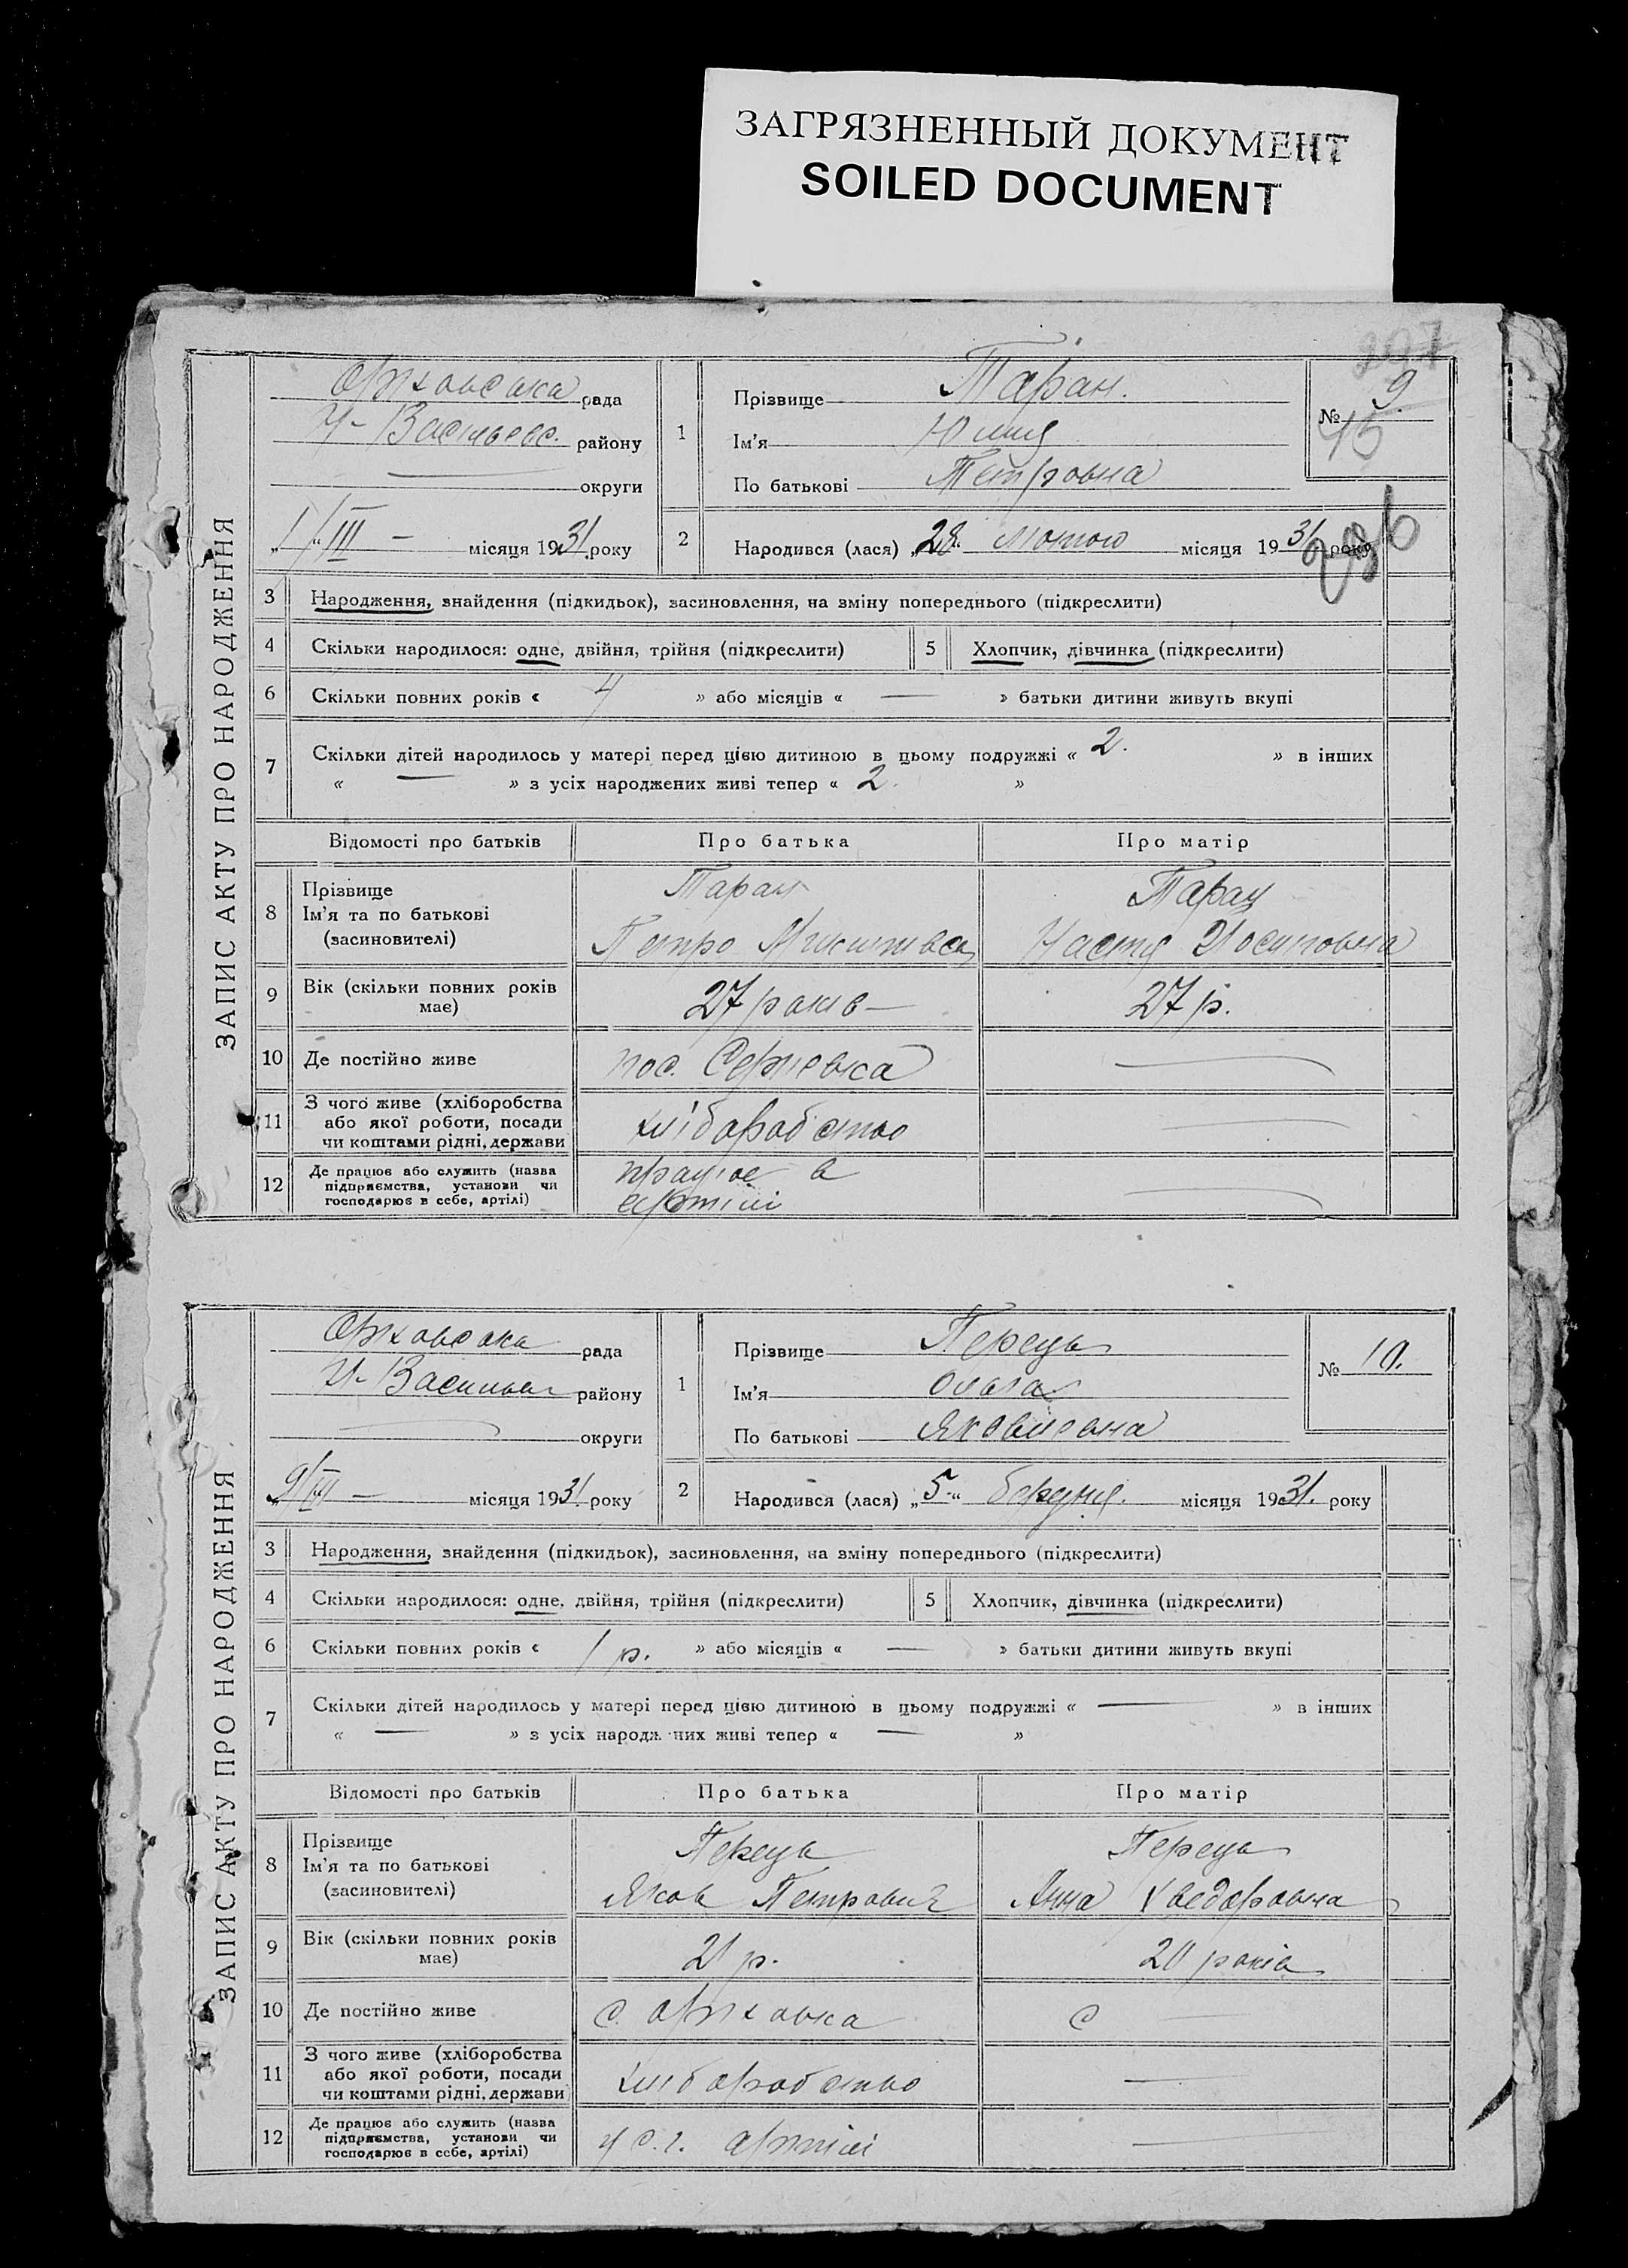 ЗАГРЯЗНЕННЫЙ ДОКУМЕНТ
SOILED DOCUMENT
ЗАПИС АКТУ ПРО НАРОДЖЕННЯ
рада
району
округи
1/III — місяця 1931 року
1
Прізвище Таран.
Ім'я
По батькові Петровна
№ 9
2
Народився (лася) „28“ лютого місяця 1931 року
286
3 Народження, знайдення (підкидьок), засиновлення, на зміну попереднього (підкреслити)
4 Скільки народилося: одне, двійня, трійня (підкреслити) 5 Хлопчик, дівчинка (підкреслити)
6 Скільки повних років « 4 » або місяців « — » батьки дитини живуть вкупі
7 Скільки дітей народилось у матері перед цією дитиною в цьому подружжі « 2. » в інших
« — » з усіх народжених живі тепер « 2. »
Відомості про батьків Про батька Про матір
8 Прізвище Таран Таран
Ім'я та по батькові Петро Настя Иосиповна
(засиновителі)
9 Вік (скільки повних років має) 27 років — 27 р.
10 Де постійно живе пос. Сергіевка —
11 З чого живе (хліборобства або якої роботи, посади чи коштами рідні, держави хліборобство —
12 Де працює або служить (назва підприємства, установи чи господарює в себе, артілі) працює в артілі —
ЗАПИС АКТУ ПРО НАРОДЖЕННЯ
рада
району
округи
9/III — місяця 1931. року
1
Прізвище Перець
Ім'я Ольга
По батькові Яковлевна
№ 10.
2
Народився (лася) „5.“ березня. місяця 1931. року
3 Народження, знайдення (підкидьок), засиновлення, на зміну попереднього (підкреслити)
4 Скільки народилося: одне, двійня, трійня (підкреслити) 5 Хлопчик, дівчинка (підкреслити)
6 Скільки повних років « 1 р. » або місяців « — » батьки дитини живуть вкупі
7 Скільки дітей народилось у матері перед цією дитиною в цьому подружжі « — » в інших
« — » з усіх народж них живі тепер « — »
Відомості про батьків Про батька Про матір
8 Прізвище Перець Перець
Ім'я та по батькові Яков Петрович Анна Хведоровна
(засиновителі)
9 Вік (скільки повних років має) 21 р. 20 років
10 Де постійно живе с. Оржховка с —
11 З чого живе (хліборобства або якої роботи, посади чи коштами рідні, держави хліборобство —
12 Де працює або служить (назва підприємства, установи чи господарює в себе, артілі) у с.г. артілі —